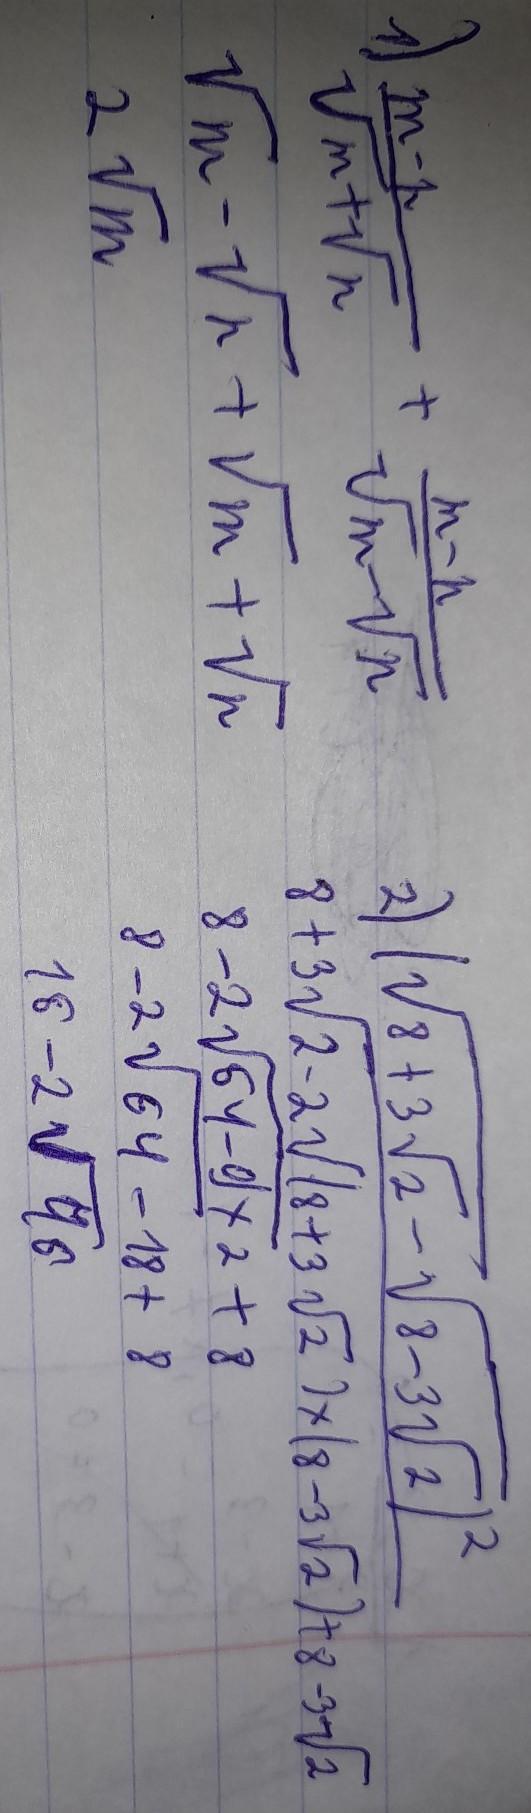 1) m-n/√m+√n + m-n/√m-√n
√m - √n + √m + √n
2√m
2) (√8+3√2 - √8-3√2)²
8+3√2-2√(8+3√2)×(8-3√2)+8-3√2
8-2√64-9×2+8
8-2√64-18+8
16-2√46